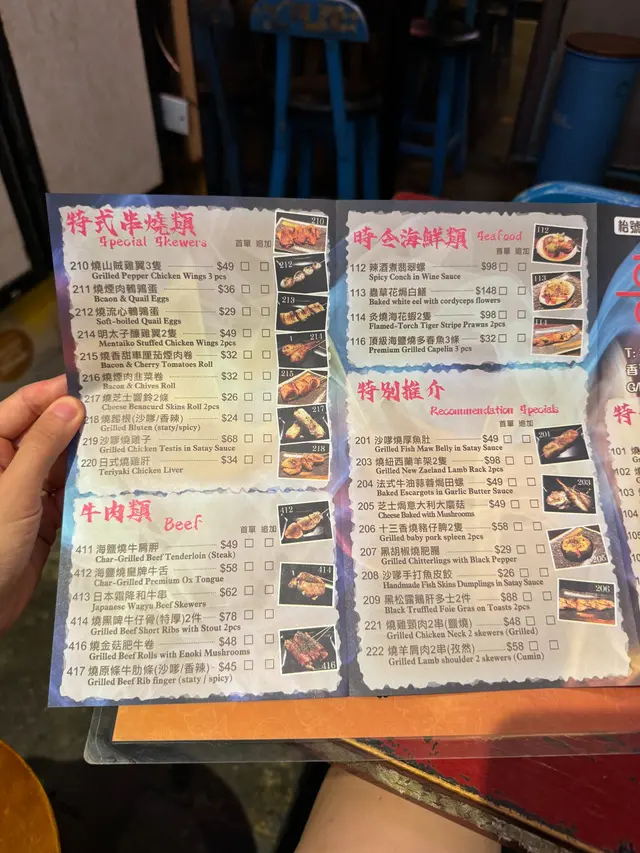 特式串燒類
Special Skewers
首單 追加
210
210 燒山賊雞翼3隻 $49
Grilled Pepper Chicken Wings 3 pcs
211 燒煙肉鵪鶉蛋 $36
Bcaon & Quail Eggs
212
212 燒流心鵪鶉蛋 $29
Soft-boiled Quail Eggs
213
214 明太子釀雞翼2隻 $49
Mentaiko Stuffed Chicken Wings 2pcs
214
215 燒香甜車厘茄煙肉卷 $32
Bacon & Cherry Tomatoes Roll
215
216 燒煙肉韭菜卷 $32
Bacon & Chives Roll
217 燒芝士響鈴2條 $26
Cheese Beancurd Skins Roll 2pcs
217
218 燒麵根(沙嗲/香辣) $24
Grilled Bluten (staty/spicy)
219 沙嗲燒雞子 $68
Grilled Chicken Testis in Satay Sauce
218
220 日式燒雞肝 $34
Teriyaki Chicken Liver
牛肉類
Beef
首單 追加
412
411 海鹽燒牛肩胛 $49
Char-Grilled Beef Tenderloin (Steak)
412 海鹽燒皇牌牛舌 $58
Char-Grilled Premium Ox Tongue
414
413 日本霜降和牛串 $62
Japanese Wagyu Beef Skewers
414 燒黑啤牛仔骨(特厚)2件 $78
Grilled Beef Short Ribs with Stout 2pcs
416 燒金菇肥牛卷 $48
Grilled Beef Rolls with Enoki Mushrooms
416
417 燒原條牛肋條(沙嗲/香辣) $45
Grilled Beef Rib finger (staty / spicy)
時令海鮮類 Seafood
首單 追加
112
112 辣酒煮翡翠螺 $98
Spicy Conch in Wine Sauce
113 蟲草花焗白鱔 $148
Baked white eel with cordyceps flowers
113
114 炙燒海花蝦2隻 $98
Flamed-Torch Tiger Stripe Prawns 2pcs
114
116 頂級海鹽燒多春魚3條 $32
Premium Grilled Capelin 3 pcs
特別推介
Recommendation Specials
首單 追加
201
201 沙嗲燒厚魚肚 $49
Grilled Fish Maw Belly in Satay Sauce
203 燒紐西蘭羊架2隻 $98
Grilled New Zaeland Lamb Rack 2pcs
204 法式牛油蒜蓉焗田螺 $49
Baked Escargots in Garlic Butter Sauce
203
205 芝士焗意大利大蘑菇 $49
Cheese Baked with Mushrooms
206 十三香燒豬仔脾2隻 $58
Grilled baby pork spleen 2pcs
207 黑胡椒燒肥腸 $29
Grilled Chitterlings with Black Pepper
205
208 沙嗲手打魚皮餃 $26
Handmade Fish Skins Dumplings in Satay Sauce
206
209 黑松露鵝肝多士2件 $88
Black Truffled Foie Gras on Toasts 2pcs
221 燒雞頸肉2串(鹽燒) $48
Grilled Chicken Neck 2 skewers (Grilled)
222 燒羊肩肉2串(孜然) $58
Grilled Lamb shoulder 2 skewers (Cumin)
101
102
103
104
105
106
107
108